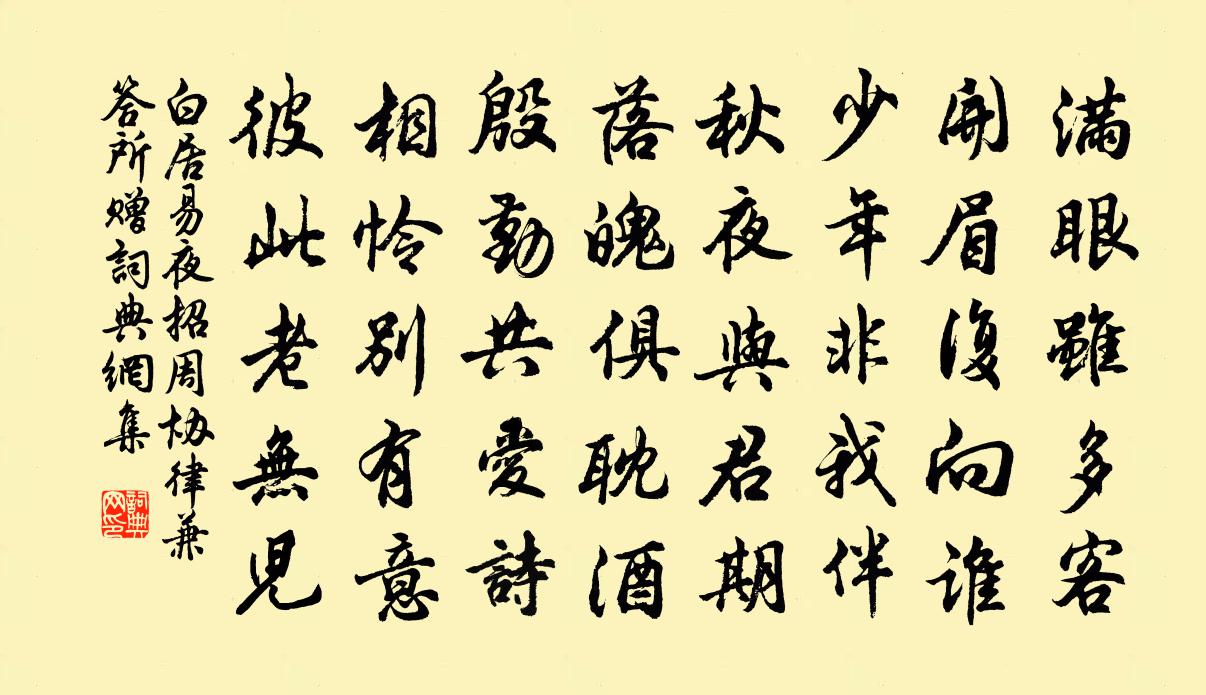 满眼雖多客
開眉復向谁
少年非我伴
秋夜與君期
落魄俱耽酒
殷勤共愛詩
相怜别有意
彼此老無児
白居易夜招周协律兼
答所赠詞典網集
詞典
网印